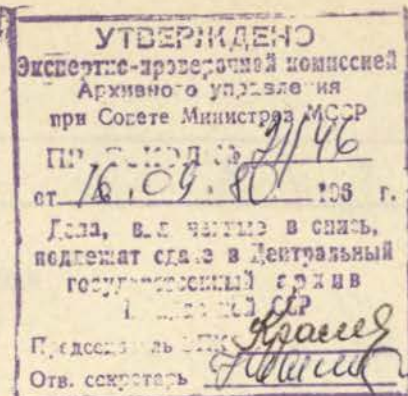 УТВЕРЖДЕНО
Экспертно-проверочной комиссией
Архивного управления
при Совете Министров МССР
ПРОТОКОЛ №
от 16.09.80 196 г.
Дела, включенные в опись,
подлежат сдаче в Центральный
государственный архив
ССР
Председатель ЭПК
Отв. секретарь